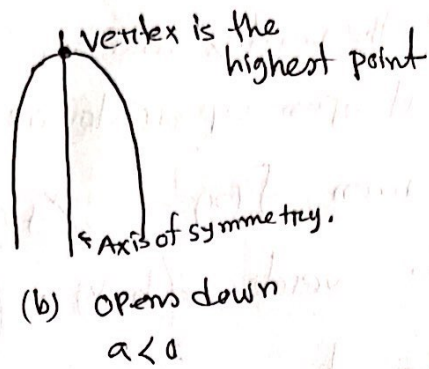 Vertex is the
highest point
Axis of symmetry.
(b) opens down
a < 0